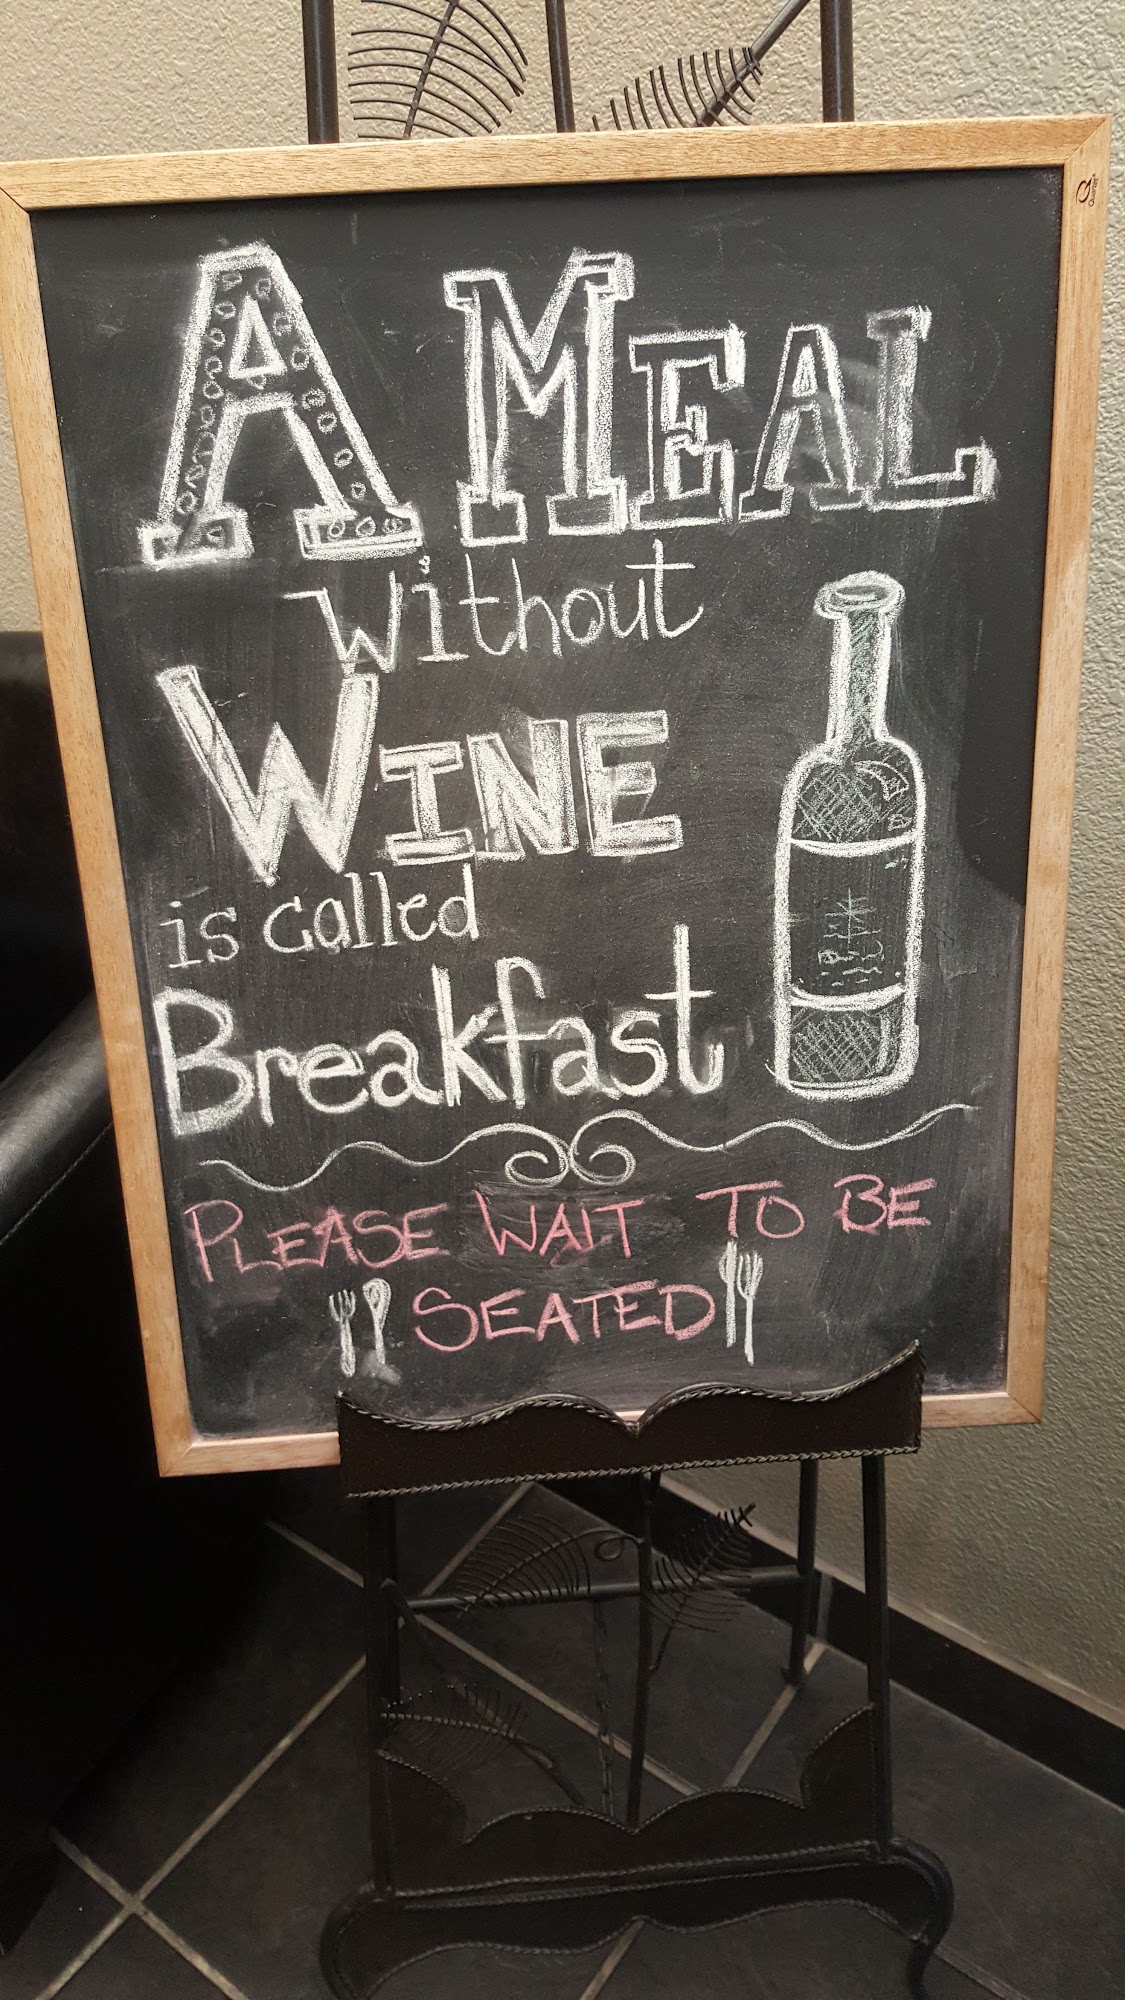 A MEAL
without
WINE
is called
Breakfast
PLEASE WAIT TO BE
SEATED
Quartet